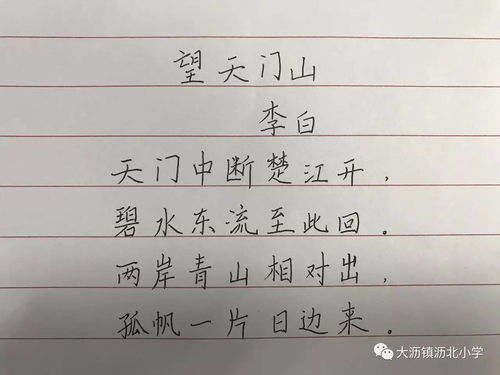 望天门山
李白
天门中断楚江开，
碧水东流至此回。
两岸青山相对出，
孤帆一片日边来。
大沥镇沥北小学